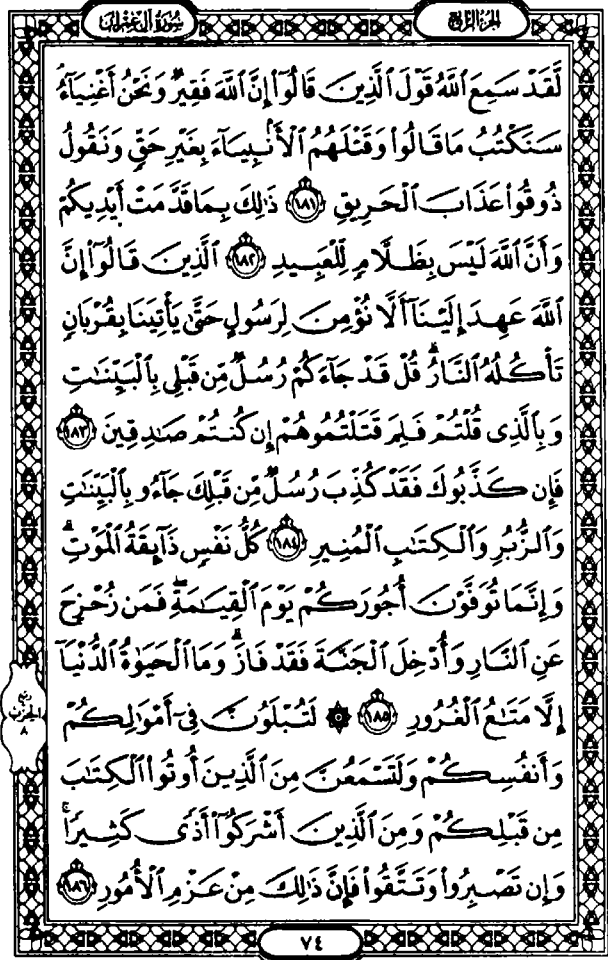 سُورَةُ آلِ عِمْرَانَ
الجُزْءُ الرَّابِعُ
لَّقَدْ سَمِعَ ٱللَّهُ قَوْلَ ٱلَّذِينَ قَالُوٓا۟ إِنَّ ٱللَّهَ فَقِيرٌ وَنَحْنُ أَغْنِيَآءُ
سَنَكْتُبُ مَا قَالُوا۟ وَقَتْلَهُمُ ٱلْأَنۢبِيَآءَ بِغَيْرِ حَقٍّ وَنَقُولُ
ذُوقُوا۟ عَذَابَ ٱلْحَرِيقِ ١٨١ ذَٰلِكَ بِمَا قَدَّمَتْ أَيْدِيكُمْ
وَأَنَّ ٱللَّهَ لَيْسَ بِظَلَّامٍ لِّلْعَبِيدِ ١٨٢ ٱلَّذِينَ قَالُوٓا۟ إِنَّ
ٱللَّهَ عَهِدَ إِلَيْنَآ أَلَّا نُؤْمِنَ لِرَسُولٍ حَتَّىٰ يَأْتِيَنَا بِقُرْبَانٍ
تَأْكُلُهُ ٱلنَّارُ ۗ قُلْ قَدْ جَآءَكُمْ رُسُلٌ مِّن قَبْلِى بِٱلْبَيِّنَٰتِ
وَبِٱلَّذِى قُلْتُمْ فَلِمَ قَتَلْتُمُوهُمْ إِن كُنتُمْ صَٰدِقِينَ ١٨٣
فَإِن كَذَّبُوكَ فَقَدْ كُذِّبَ رُسُلٌ مِّن قَبْلِكَ جَآءُو بِٱلْبَيِّنَٰتِ
وَٱلزُّبُرِ وَٱلْكِتَٰبِ ٱلْمُنِيرِ ١٨٤ كُلُّ نَفْسٍ ذَآئِقَةُ ٱلْمَوْتِ ۗ
وَإِنَّمَا تُوَفَّوْنَ أُجُورَكُمْ يَوْمَ ٱلْقِيَٰمَةِ ۖ فَمَن زُحْزِحَ
عَنِ ٱلنَّارِ وَأُدْخِلَ ٱلْجَنَّةَ فَقَدْ فَازَ ۗ وَمَا ٱلْحَيَوٰةُ ٱلدُّنْيَآ
إِلَّا مَتَٰعُ ٱلْغُرُورِ ١٨٥ ۞ لَتُبْلَوُنَّ فِىٓ أَمْوَٰلِكُمْ
وَأَنفُسِكُمْ وَلَتَسْمَعُنَّ مِنَ ٱلَّذِينَ أُوتُوا۟ ٱلْكِتَٰبَ
مِن قَبْلِكُمْ وَمِنَ ٱلَّذِينَ أَشْرَكُوٓا۟ أَذًى كَثِيرًا ۚ
وَإِن تَصْبِرُوا۟ وَتَتَّقُوا۟ فَإِنَّ ذَٰلِكَ مِنْ عَزْمِ ٱلْأُمُورِ ١٨٦
ربع
الحزب
٨
٧٤